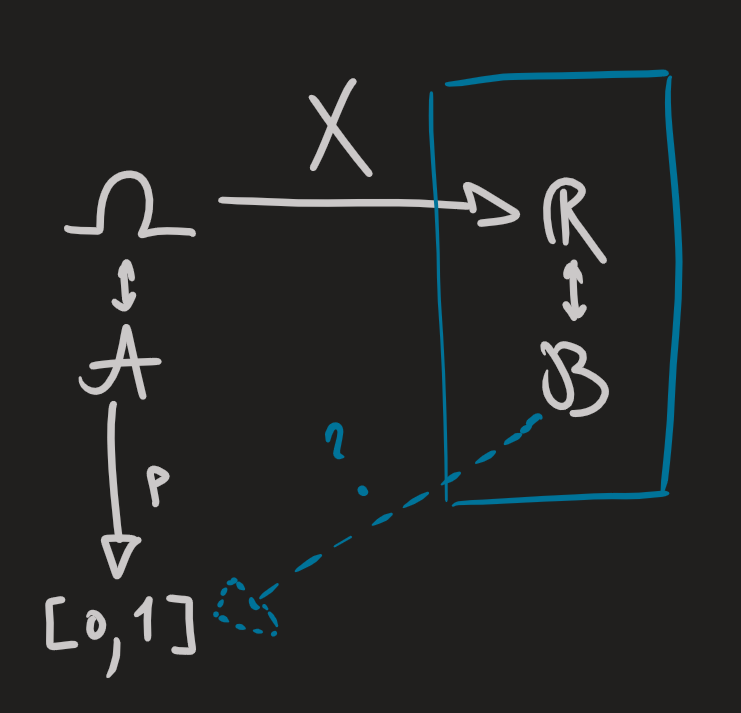 X
Ω
R
A
B
?
P
[0,1]